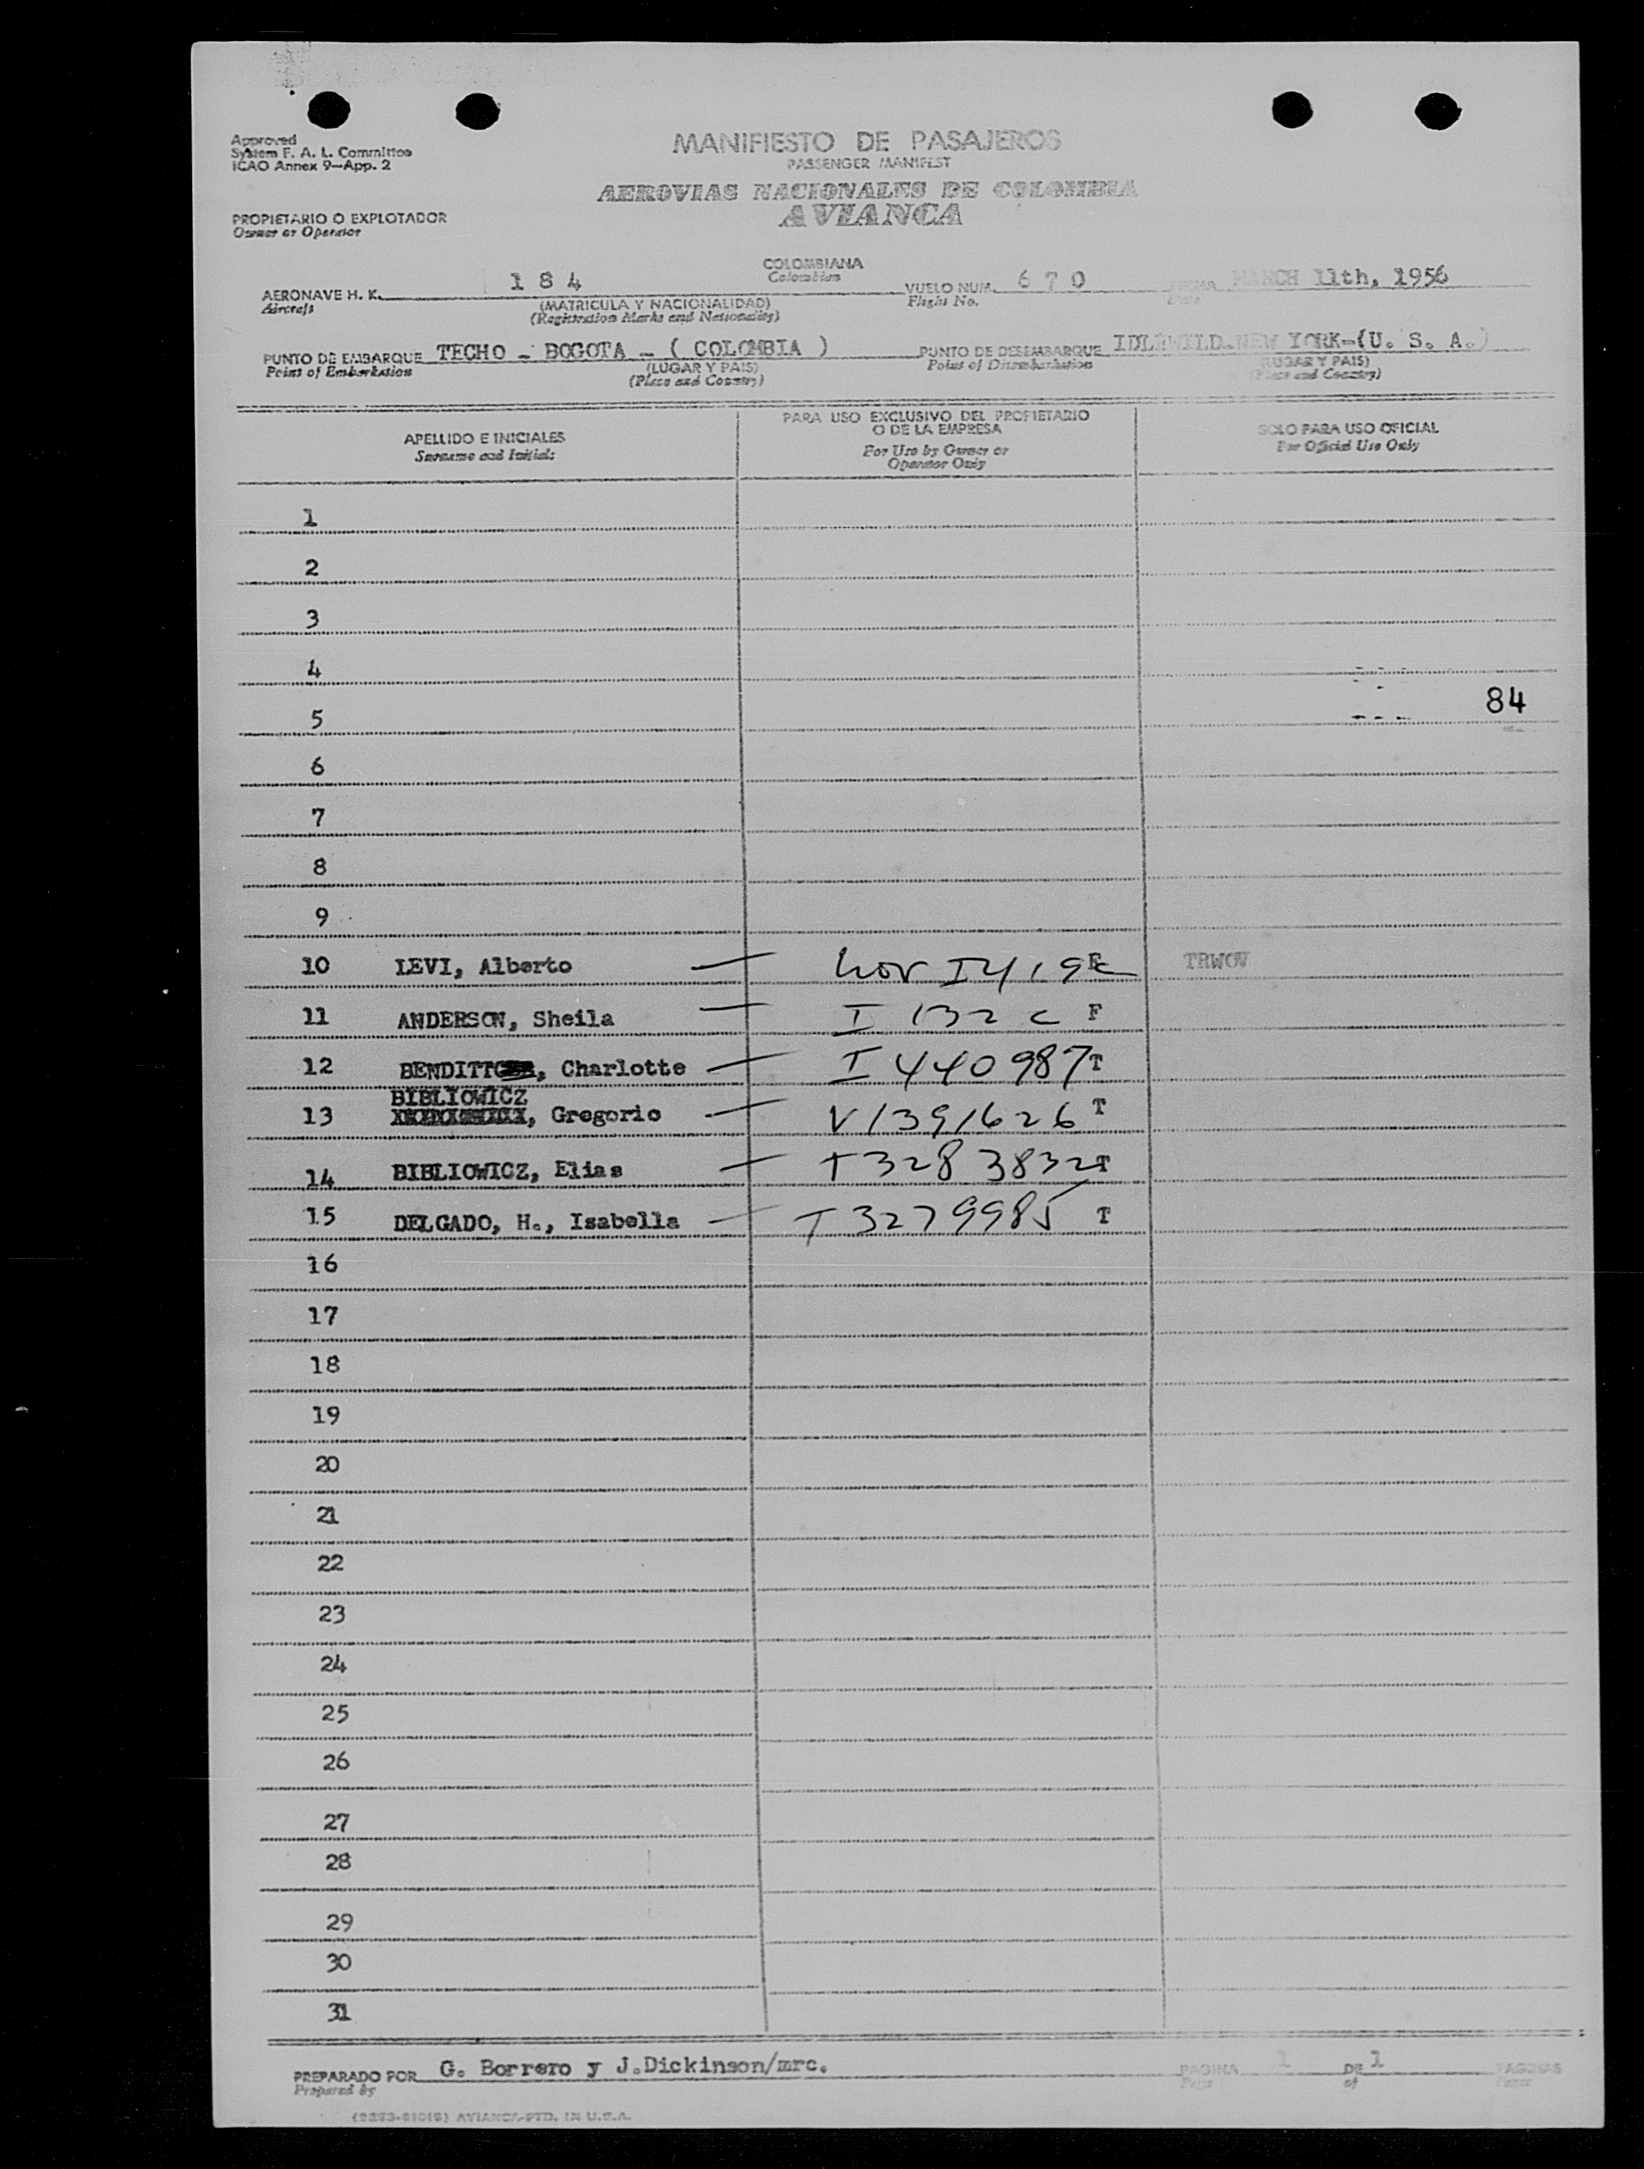 Approved
System F. A. L. Committee
ICAO Annex 9-App. 2
MANIFIESTO DE PASAJEROS
PASSENGER MANIFEST
AEROVIAS NACIONALES DE COLOMBIA
AVIANCA
PROPIETARIO O EXPLOTADOR
Owner or Operator
AERONAVE H. K. 184 COLOMBIANA VUELO NUM. 670 FECHA MARCH 11th, 1956
Aircraft Colombian Flight No. Date
(MATRICULA Y NACIONALIDAD)
(Registration Marks and Nationality)
PUNTO DE EMBARQUE TECHO - BOGOTA - ( COLOMBIA ) PUNTO DE DESEMBARQUE IDLEWILD-NEW YORK-(U. S. A.)
Point of Embarkation (LUGAR Y PAIS) Point of Disembarkation (LUGAR Y PAIS)
(Place and Country) (Place and Country)
APELLIDO E INICIALES
Surname and Initials
PARA USO EXCLUSIVO DEL PROPIETARIO
O DE LA EMPRESA
For Use by Owner or
Operator Only
SOLO PARA USO OFICIAL
For Official Use Only
1
2
3
4
84
5
6
7
8
9
10 LEVI, Alberto — TRWOV
11 ANDERSON, Sheila — I 132 C F
12 BENDITT, Charlotte — I 440987 T
BIBLIOWICZ
13 , Gregorio — V1391626 T
14 BIBLIOWICZ, Elias — T3283832 T
15 DELGADO, H., Isabella — T3279985 T
16
17
18
19
20
21
22
23
24
25
26
27
28
29
30
31
PREPARADO POR G. Borrero y J.Dickinson/mrc. PAGINA 1 DE 1 PAGINAS
Prepared by Page of Pages
AVIANCA-PTD. IN U.S.A.